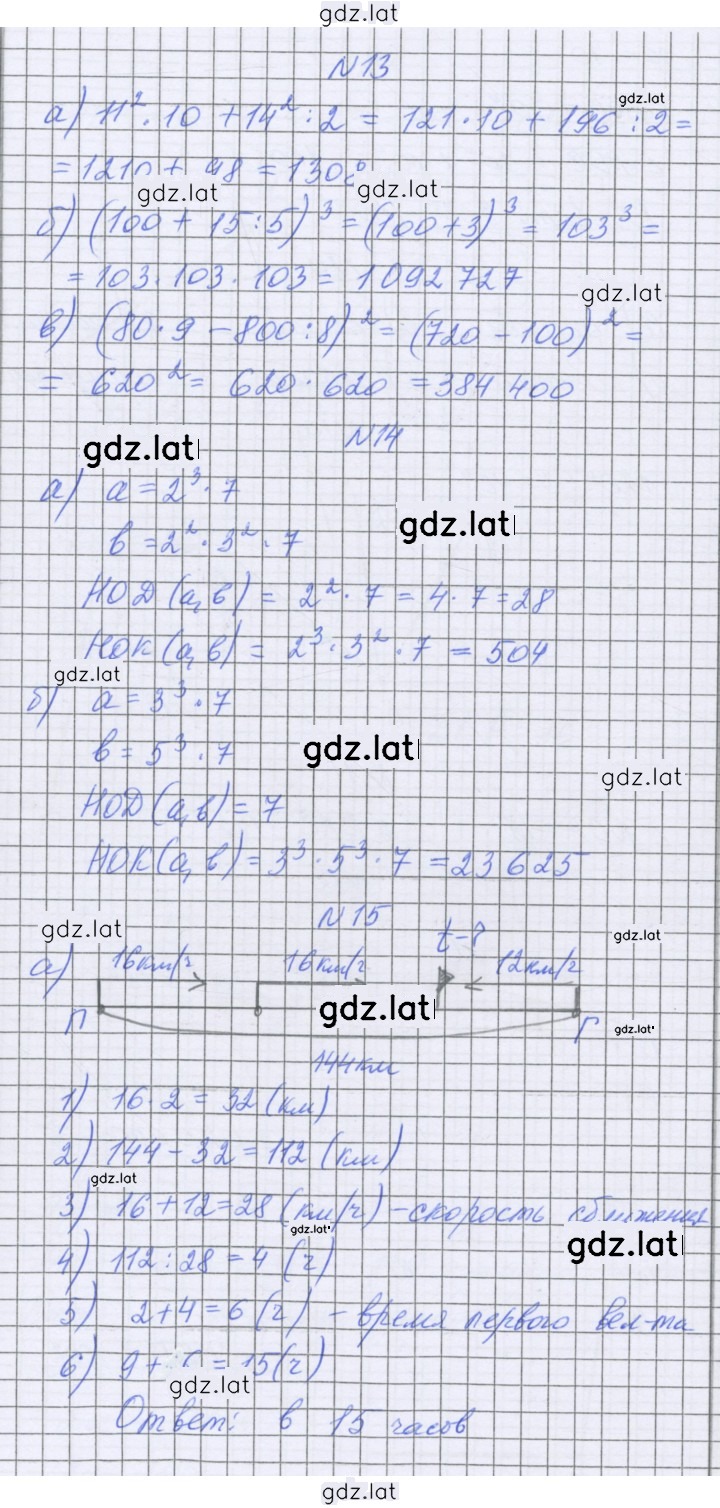 gdz.lat
N13
gdz.lat
а) 11². 10 + 14² : 2 = 121 · 10 + 196 : 2 =
= 1210 + 98 = 1308
gdz.lat gdz.lat
б) (100 + 15 : 5)³ = (100 + 3)³ = 103³ =
= 103 · 103 · 103 = 1 092 727
gdz.lat
в) (80 · 9 – 800 : 8)² = (720 – 100)² =
= 620² = 620 · 620 = 384 400
N14
gdz.lat
а) а = 2³ · 7
gdz.lat
в = 2² · 3² · 7
НОД (а, в) = 2² · 7 = 4 · 7 = 28
НОК (а, в) = 2³ · 3² · 7 = 504
gdz.lat
б) а = 3³ · 7
в = 5³ · 7
gdz.lat
gdz.lat
НОД (а, в) = 7
НОК (а, в) = 3³ · 5³ · 7 = 23 625
N15
gdz.lat t-? gdz.lat
а) 16 км/ч 16 км/ч 12 км/ч
gdz.lat
П Г gdz.lat
144 км
1) 16 · 2 = 32 (км)
2) 144 – 32 = 112 (км)
gdz.lat
3) 16 + 12 = 28 (км/ч) – скорость сближения
gdz.lat gdz.lat
4) 112 : 28 = 4 (ч)
5) 2 + 4 = 6 (ч) – время первого вел-та
6) 9 + 6 = 15 (ч)
gdz.lat
Ответ: в 15 часов
gdz.lat